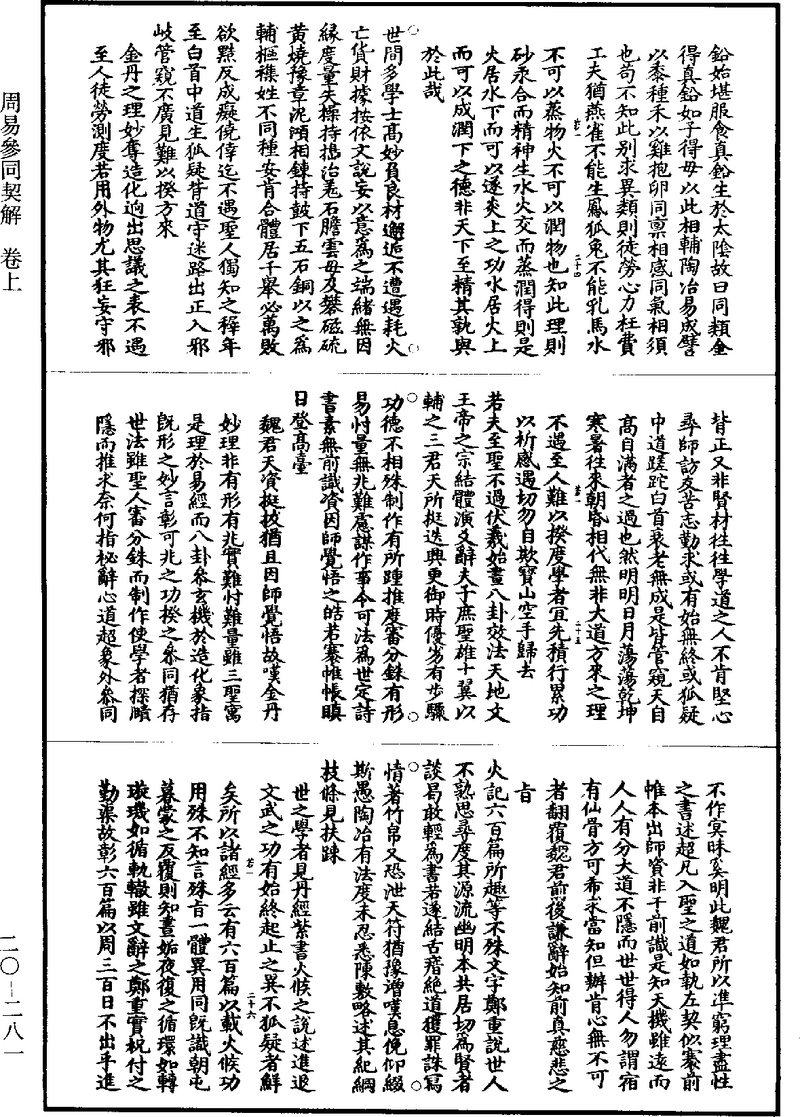 周易參同契解 卷上
鉛始堪服食真鉛生於太陰故曰同類金
得真鉛如子得母以此相輔陶冶易成譬
以黍種禾以雞抱卵同禀相感同氣相須
也苟不知此别求異類則徒勞心力枉費
工夫猶燕雀不能生鳳狐兔不能乳馬水
不可以蒸物火不可以潤物也知此理則
砂汞合而精神生水火交而蒸潤得則是
火居水下而可以遂炎上之功水居火上
而可以成潤下之德非天下至精其孰與
於此哉
世間多學士高妙負良材邂逅不遭遇耗火
亡貨財據按依文說妄以意爲之端緒無因
緣度量失操持擣治羌石膽雲母及礬磁硫
黄燒豫章泥澒相鍊持鼓下五石銅以之爲
輔樞雜姓不同種安肯合體居千舉必萬敗
欲黠反成癡僥倖迄不遇聖人獨知之稺年
至白首中道生狐疑背道守迷路出正入邪
岐管窺不廣見難以揆方來
金丹之理妙奪造化迥出思議之表不遇
至人徒勞測度若用外物尤其狂妄守邪
二十四
背正又非賢材往往學道之人不肯堅心
尋師訪友苦志勤求或有始無終或狐疑
中道蹉跎白首衰老無成是皆管窺天自
高自滿者之過也然明明日月蕩蕩乾坤
寒暑往來朝昏相代無非大道方來之理
不遇至人難以揆度學者宜先積行累功
以祈感遇切勿自欺寶山空手歸去
若夫至聖不過伏羲始畫八卦效法天地文
王帝之宗結體演爻辭夫子庶聖雄十翼以
輔之三君天所挺迭興更御時優劣有步驟
功德不相殊制作有所踵推度審分銖有形
易忖量無兆難慮謀作事令可法爲世定詩
書素無前識資因師覺悟之皓若褰帷帳瞋
目登高臺
魏君天資挺拔猶且因師覺悟故嘆金丹
妙理非有形有兆實難忖難量雖三聖寓
是理於易經而八卦叅玄機於造化象指
旣形之妙言彰可兆之功揆之叅同猶存
世法雖聖人審分銖而制作使學者探賾
隱而推求奈何指秘辭心道超象外叅同
二十五
不作冥昧奚明此魏君所以準窮理盡性
之書述超凡入聖之道如執左契似褰前
帷本出師資非干前識是知天機雖遠而
人人有分大道不隱而世世得人勿謂宿
有仙骨方可希求當知但辦肯心無不可
者翻覆魏君前後謙辭始知前真慈悲之
旨
火記六百篇所趣等不殊文字鄭重說世人
不熟思尋度其源流幽明本共居切爲賢者
談曷敢輕爲書若遂結舌瘖絶道獲罪誅寫
情著竹帛又恐泄天符猶豫增嘆息俛仰綴
斯愚陶冶有法度未忍悉陳敷略述其紀綱
枝條見扶踈
世之學者見丹經紫書火候之說述進退
文武之功有始終起止之異不狐疑者鮮
矣所以諸經多云有六百篇以載火候功
用殊不知言殊旨一體異用同旣識朝屯
暮蒙之反覆則知晝姤夜復之循環如轉
璇璣如循軌轍雖文辭之鄭重實柷付之
勤渠故彰六百篇以周三百日不出乎進
二十六
二〇-二八一